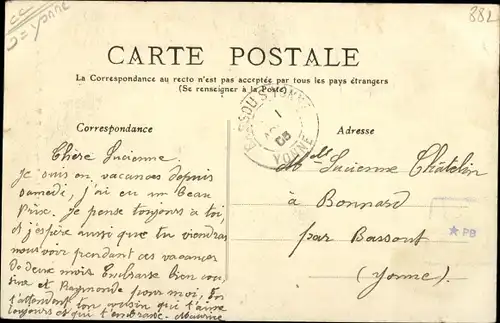 cc
D = Yonne
882
CARTE POSTALE
La Correspondance au recto n'est pas acceptée par tous les pays étrangers
(Se renseigner à la Poste)
BASSOU S. YONNE
1
05
YONNE
Correspondance
Adresse
Chère Lucienne.
Je suis en vacances depuis
samedi, j'ai eu un beau
Prix. Je pense toujours à toi,
et j'espère aussi que tu viendras
nous voir pendant ces vacances
de deux mois Embrasse bien
et Raymonde pour moi, En
t'attendant ton cousin qui t'aime
toujours et qui t'embrasse Maurice
Melle Lucienne Châtelin
à Bonnard
par Bassout
(Yonne).
★PB